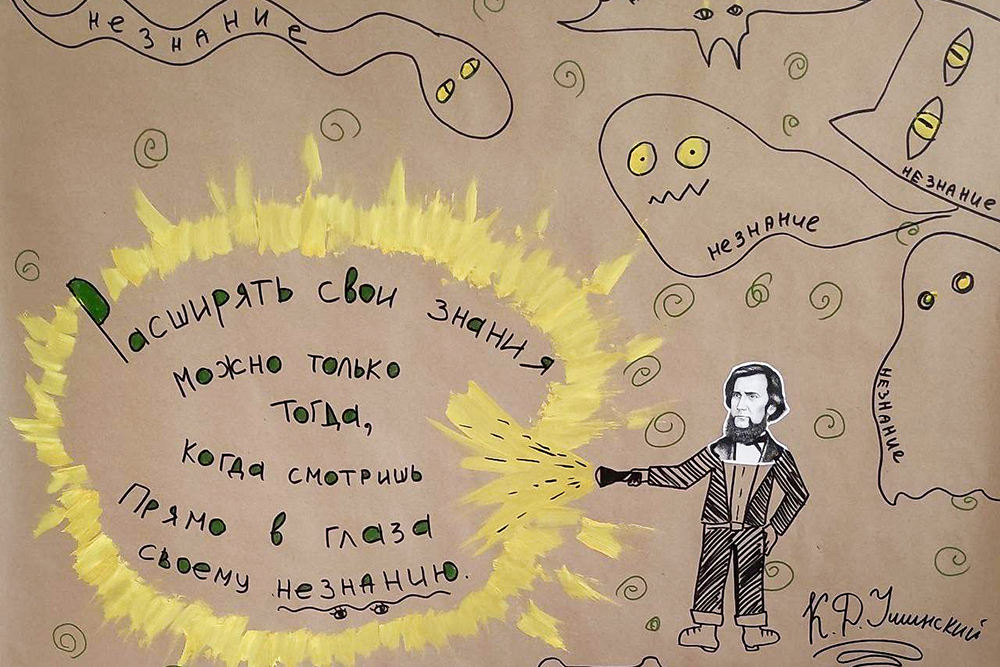 незнание
незнание
незнание
незнание
Расширять свои знания
можно только
тогда,
когда смотришь
Прямо в глаза
своему незнанию.
К.Д.Ушинский